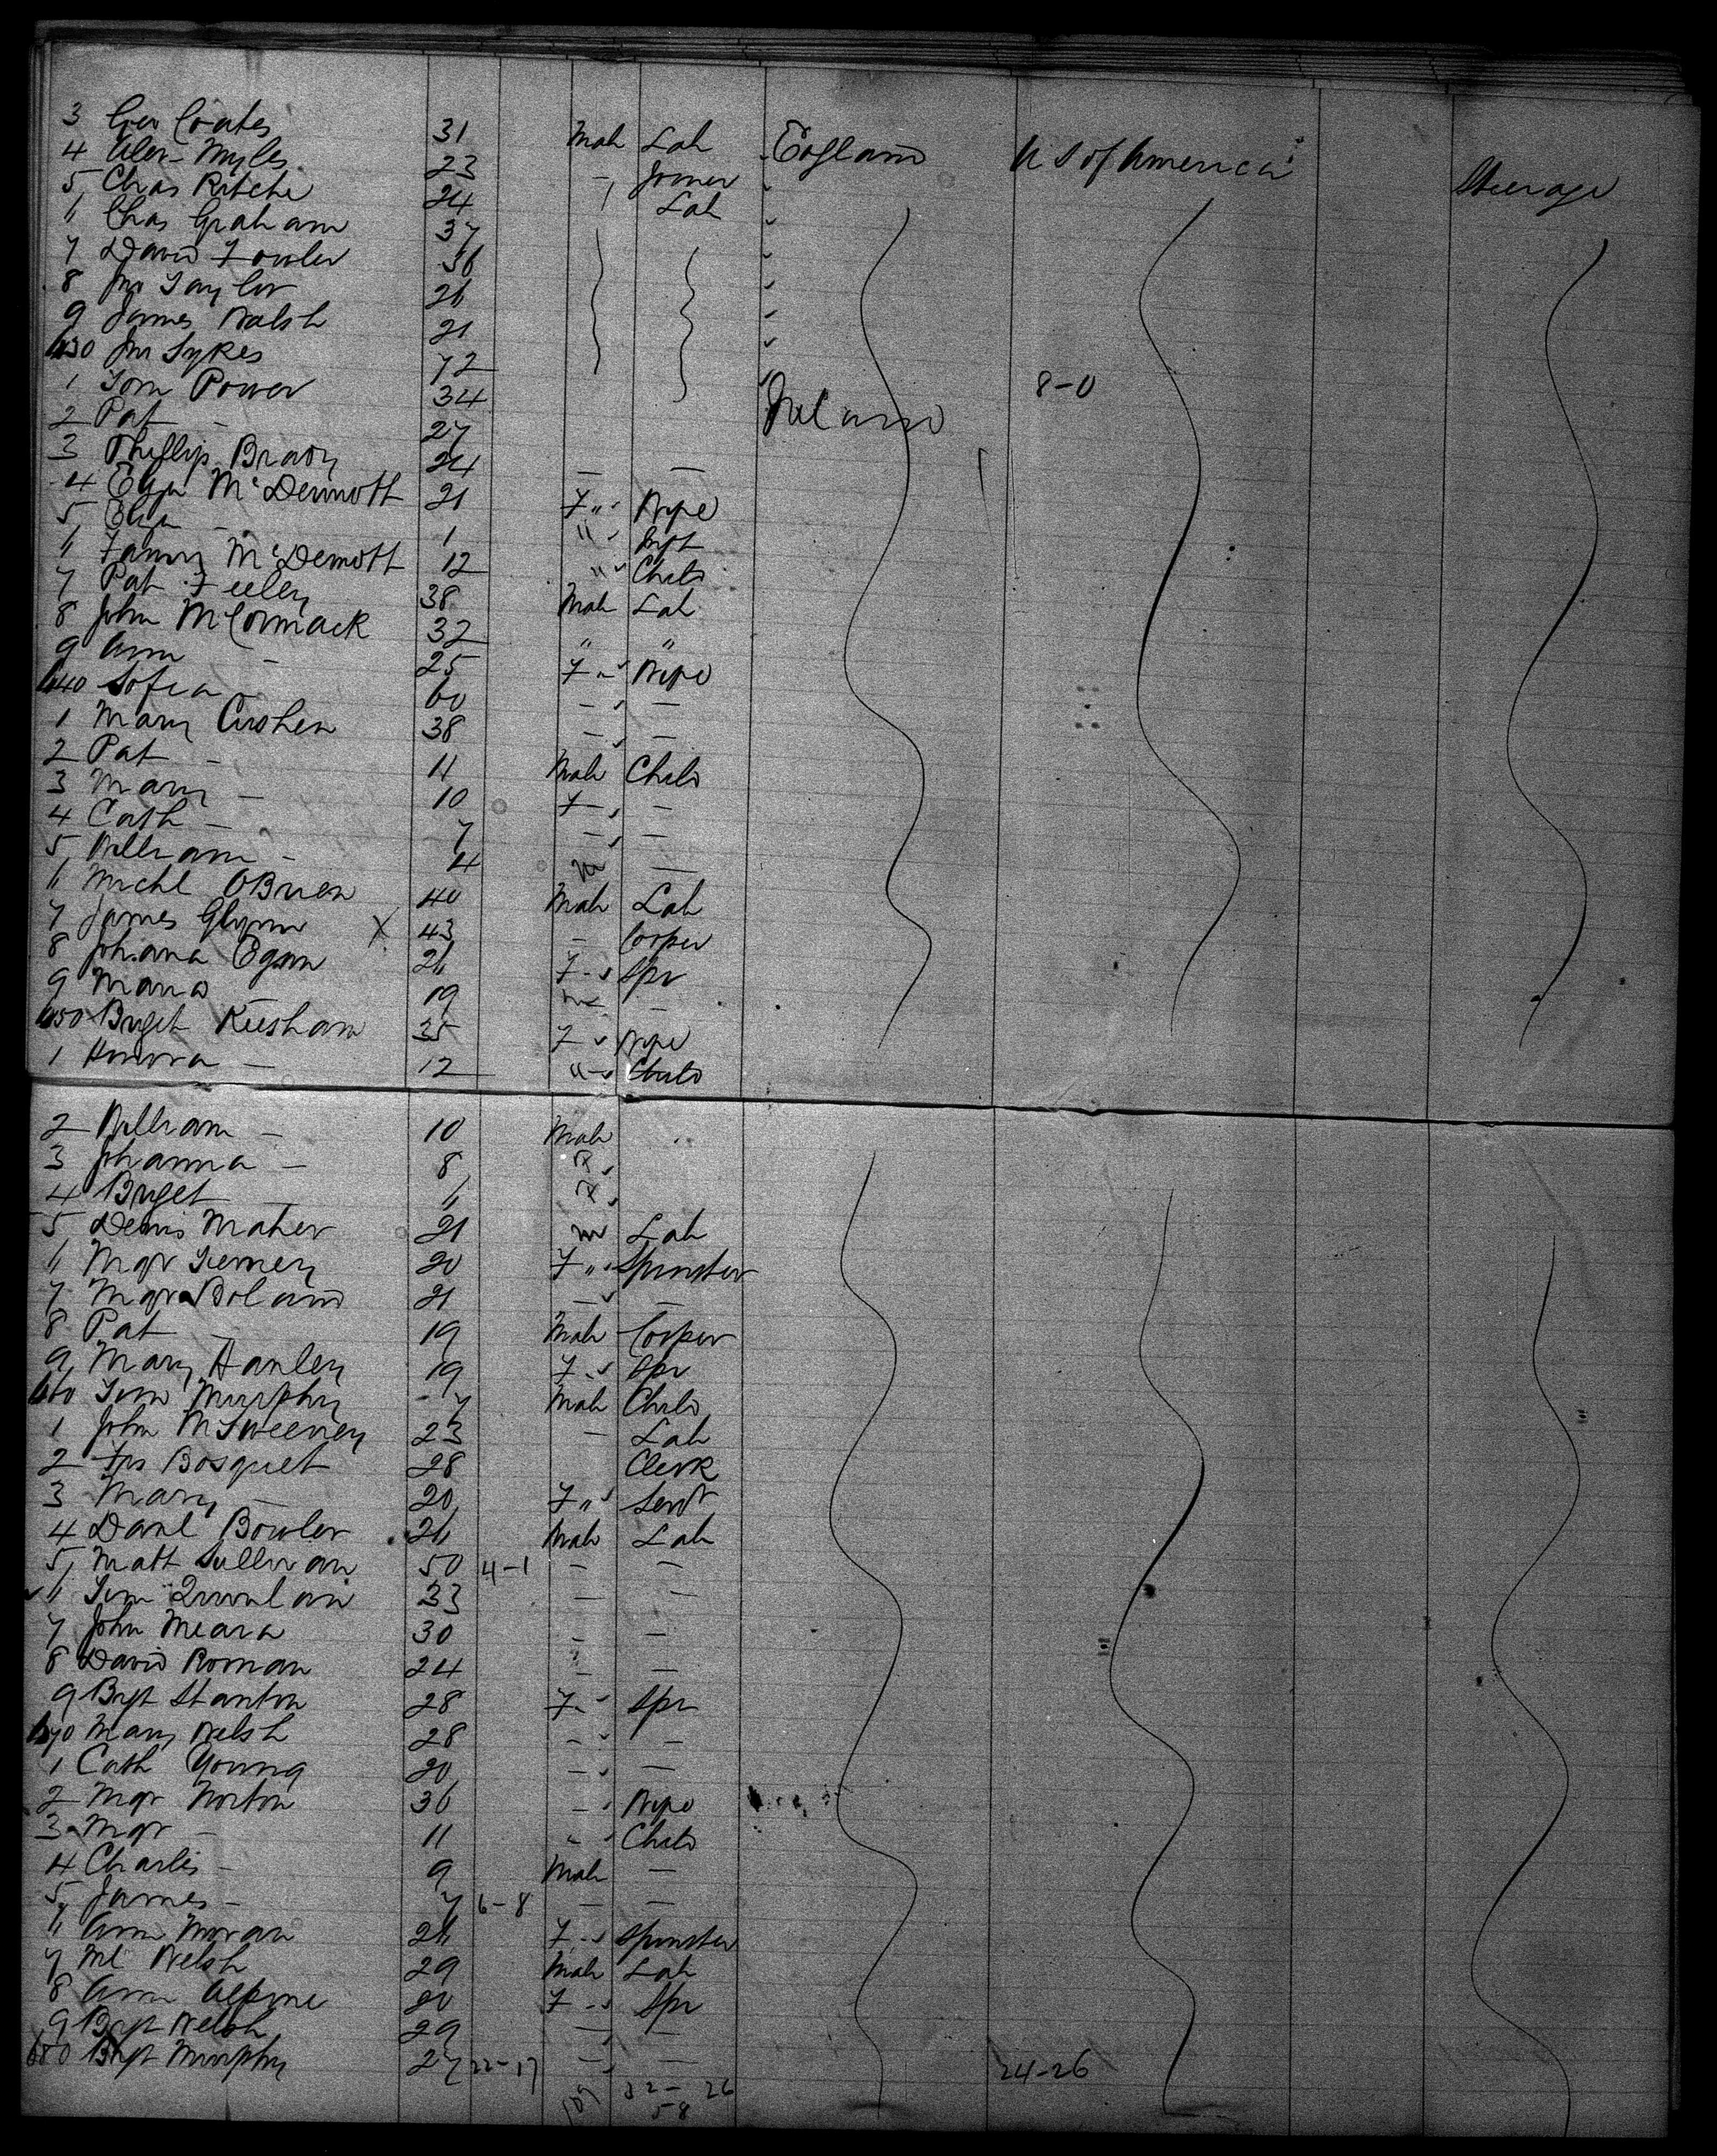 3 Geo Coates 31 Male Lab England U S of America Steerage
4 Alex Myles 23 - Joiner
5 Chas Ritchie 24 Lab
6 Chas Graham 37
7 David Fowler 36
8 Jno Taylor 26
9 James Walsh 21
630 Jno Sykes 72
1 Tom Power 34 Ireland 8-0
2 Pat - 27
3 Phillip Brady 24 - -
4 Eliza McDermott 21 F " Wife
5 Eliza - 1 " Inft
6 Fanny McDemott 12 " Child
7 Pat Feeley 38 Male Lab
8 John McCormack 32 " "
9 Ann - 25 F " Wife
640 Sofia - 60 - -
1 Mary Cushen 38 - -
2 Pat - 11 Male Child
3 Mary - 10 F - -
4 Cath - 7 - -
5 William - 4 M -
6 Michl OBrien 40 Male Lab
7 James Glynn X 43 - Cooper
8 Johana Egan 26 F - Spr
9 19 -
650 Briget Keeshan 35 F Wife
1 Honora - 12 " Child
2 William - 10 Male
3 Johanna - 8 F
4 Briget - 6 F
5 Denis Maher 21 M Lab
6 Mgr Tierney 20 F " Spinster
7 Mgr Boland 21 - -
8 Pat - 19 Male Cooper
9 Mary Hanley 19 F Spr
660 Tim Murphy 7 Male Child
1 John McSweeney 23 - Lab
2 Fns Bosquet 28 Clerk
3 Mary - 20 F " Servt
4 Danl Bowler 26 Male Lab
5 Matt Sullivan 50 4-1 - -
6 Tim Quinlan 33 - -
7 John Meara 30 - -
8 David Roman 24 - -
9 Bgt Stanton 28 F - Spr
670 Mary Welsh 28 - -
1 Cath Young 20 - -
2 Mgr Norton 36 - Wife
3 Mgr - 11 " Child
4 Charles - 9 Male -
5 James - 7 6-8 - -
6 Ann Moran 26 F - Spinster
7 Ml Welsh 29 Male Lab
8 Ann 20 F - Spr
9 Bgt Welsh 29 - -
680 Bgt Murphy 27 22-17 - - 24-26
109 32- 26
58